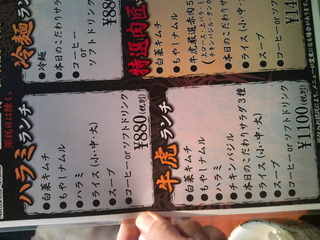 冷麺ランチ
●冷麺
●本日のこだわりサラダ
●コーヒー
or
ソフトドリンク
¥88
特選肉匠
●白菜キムチ
●もやしナムル
●牛虎厳選赤肉5
●本日のこだわりサラダ
●ライス(小・中・大)
●スープ
●コーヒーorソフトドリ
¥14
※祝日は除く。
ハラミランチ
●白菜キムチ
●もやしナムル
●ハラミ
●ライス(小・中・大)
●スープ
●コーヒーorソフトドリンク
¥880(税別)
牛虎ランチ
●白菜キムチ
●もやしナムル
●ハラミ
●チャンバジル
●本日のこだわりサラダ3種
●ライス(小・中・大)
●スープ
●コーヒーorソフトドリンク
¥1100(税別)
メニューが変更になる場合があります